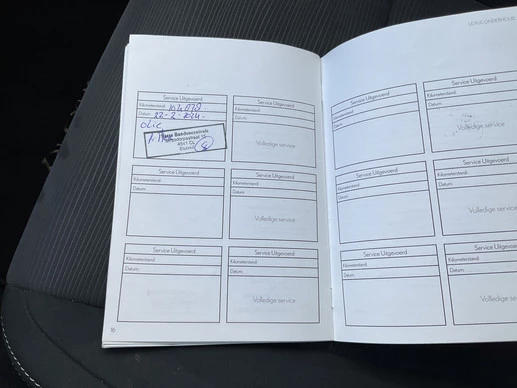 Service Uitgevoerd
Kilometerstand:
Datum: 22-2-2024
olie
Banden
4541
Service Uitgevoerd
Kilometerstand:
Datum:
Volledige service
Service Uitgevoerd
Kilometerstand:
Datum:
Service Uitgevoerd
Kilometerstand:
Datum:
Volledige service
Service Uitgevoerd
Kilometerstand:
Datum:
Service Uitgevoerd
Kilometerstand:
Datum:
Volledige service
16
Service Uitgevoerd
Kilometerstand:
Datum:
Service Uitgevoerd
Kilometerstand:
Datum:
Volledige service
Service Uitgevoerd
Kilometerstand:
Datum:
Service Uitgevoerd
Kilometerstand:
Datum:
Volledige service
Service Uitgevoerd
Kilometerstand:
Datum:
Service Uitgevoerd
Kilometerstand:
Datum:
Volledige service